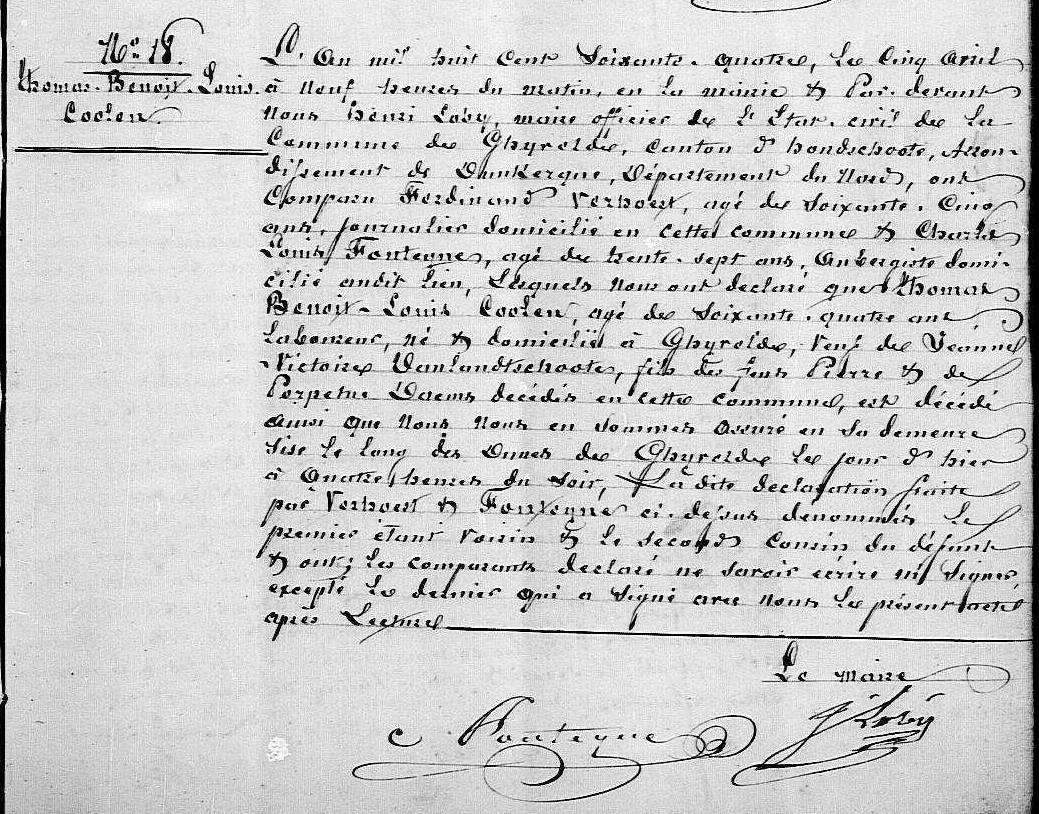 No 18.
Thomas-Benoit-Louis
Coolen
L'An mil huit cent soixante-quatre, le cinq avril
à neuf heures du matin, en la mairie & Par-devant
Nous Henri Loby, maire officier de l'Etat-civil de la
Commune de Ghyvelde, Canton d'hondschoote, Arron-
dissement de Dunkerque, Département du Nord, ont
Comparu Ferdinand Verhoest, agé de soixante-cinq
ans, journalier domicilié en cette commune & Charles
Louis Fonteyne, agé de trente-sept ans, Aubergiste domi-
cilié audit lieu, Lesquels nous ont declaré que Thomas
Benoit-Louis Coolen, agé de soixante-quatre ans,
Laboureur, né & domicilié à Ghyvelde, veuf de Jeanne
Victoire Vanlandtschoote, fils des feus Pierre & de
Perpetue Daems décédés en cette commune, est décédé
ainsi que Nous Nous en sommes assuré en sa demeure
sise le long des Dunes de Ghyvelde le jour d'hier
à quatre heures du soir, La dite declaration faite
par Verhoest & Fonteyne ci-dessus denommés le
premier étant voisin & le second cousin du défunt
& ont, les comparants declaré ne savoir écrire ni signer,
excepté le dernier qui a signé avec nous le présent acte
après Lecture
Le maire
C Fonteyne
H Loby